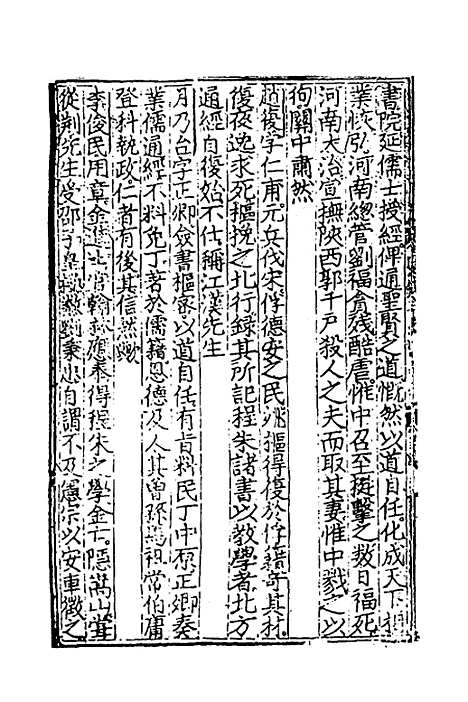 書院延儒士授經俾通聖賢之道慨然以道自任化成天下
業恢弘河南總管劉福貪殘酷虐惟中召至挺擊之數日福死
河南大治宣撫陝西郭千戶殺人之夫而取其妻惟中戮之以
徇關中肅然
趙復字仁甫元兵伐宋俘德安之民姚樞得復於俘籍奇其材
復夜逃求死樞挽之北行錄其所記程朱諸書以教學者北方
通經自復始不仕稱江漢先生
月乃合字正卿僉書樞密以道自任有旨料民丁中原正卿奏
業儒通經不料免丁著於儒籍恩德及人其曾孫馬祖常伯庸
登科執政仁者有後其信然歟
李俊民用章金進士官翰林應奉得程朱之學金亡隱嵩山
從荆先生受邵子自謂不及憲宗以安車徵之